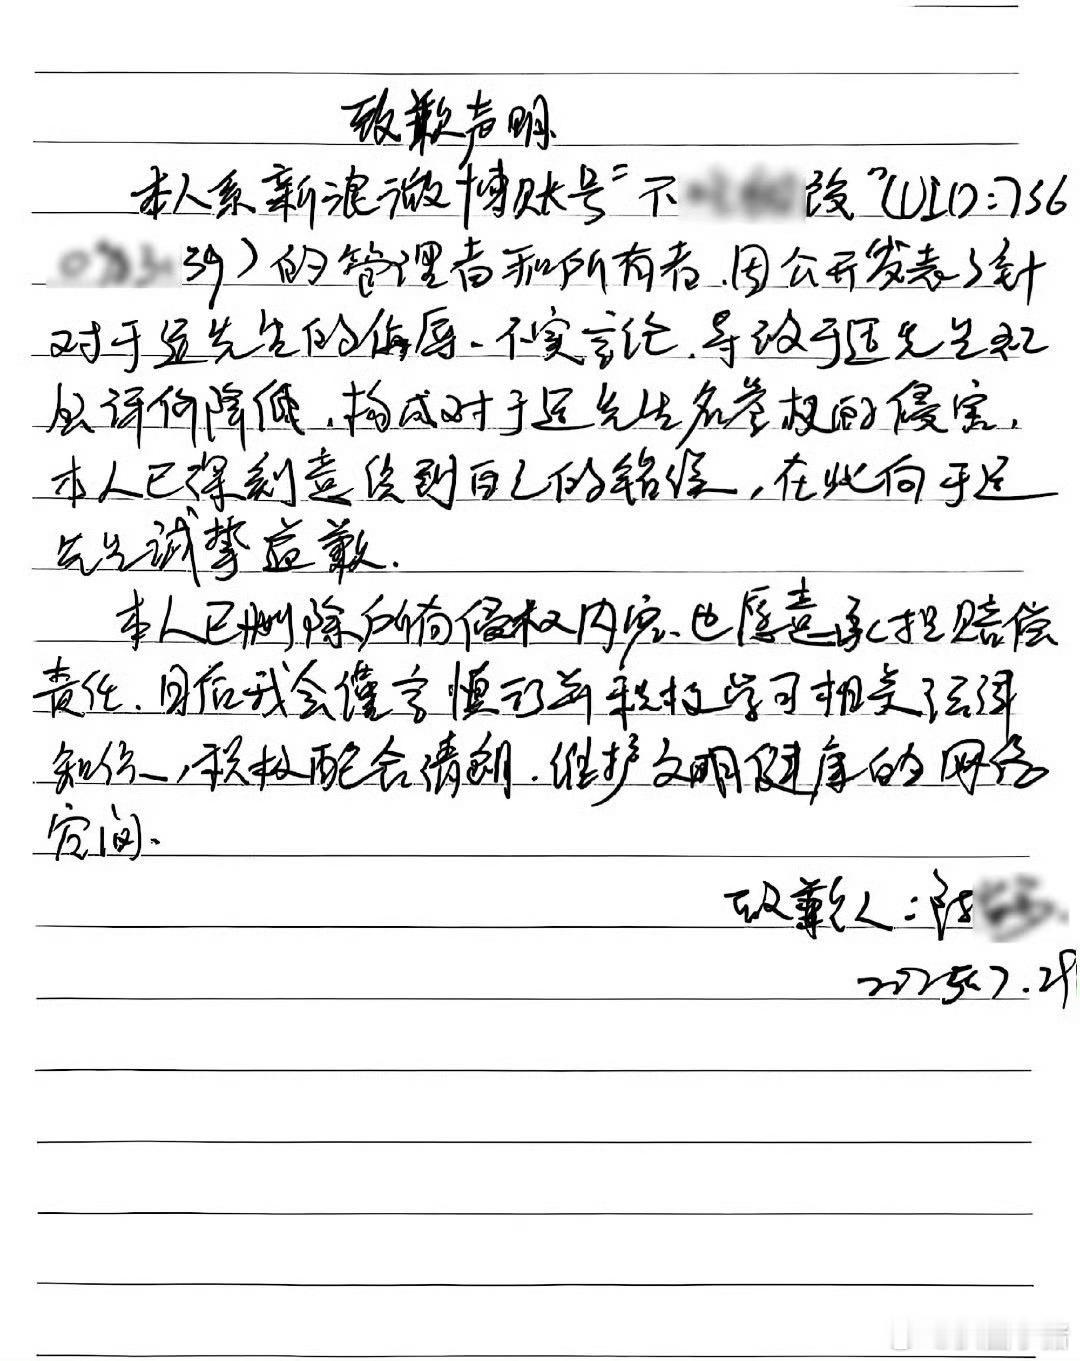 致歉声明
本人系新浪微博账号“不改”(UID:756
39)的管理者和所有者,因公开发表了针
对于适先生的侮辱、不实言论,导致于适先生社
会评价降低,构成对于适先生名誉权的侵害,
本人已深刻意识到自己的错误,在此向于适
先生诚挚道歉.
本人已删除所有侵权内容、也愿意承担赔偿
责任.日后我会谨言慎行并积极学习相关法律
知识,积极配合清朗.维护文明健康的网络
空间.
致歉人:陈
2025.7.29